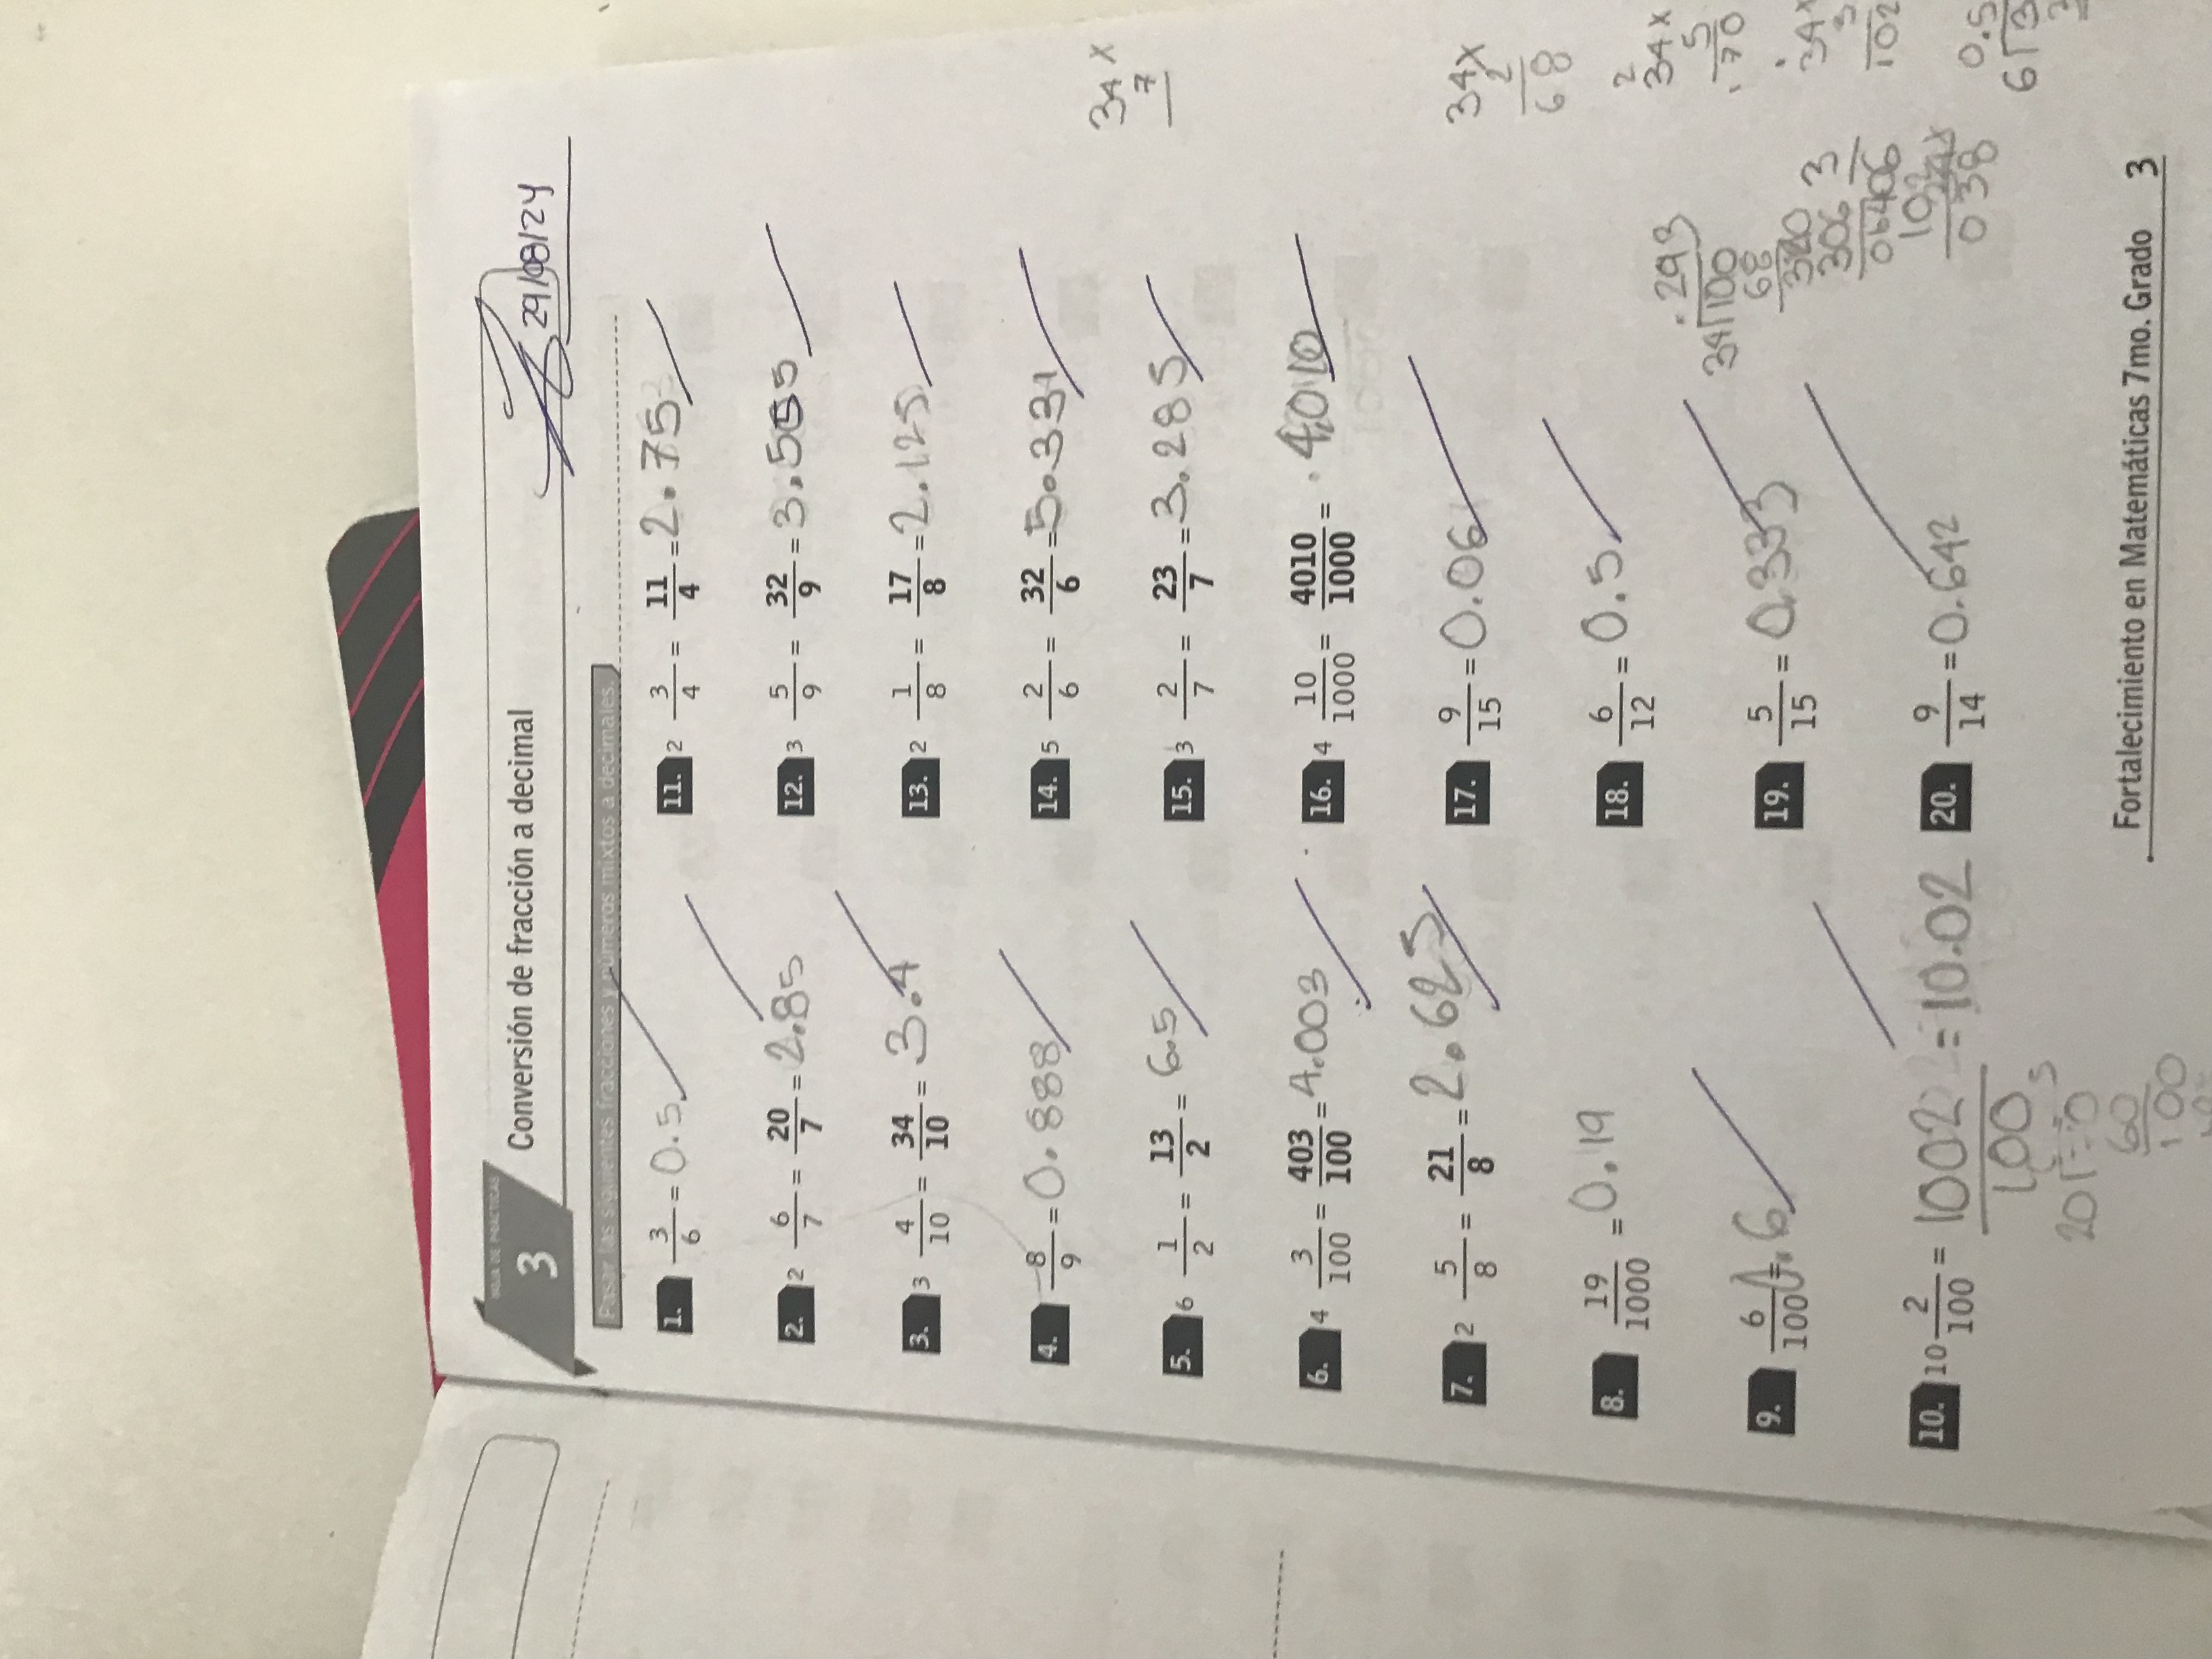 HOJA DE PRÁCTICAS
3
Conversión de fracción a decimal
29/08/24
Pasar las siguientes fracciones y números mixtos a decimales.
1. 3/6 = 0.5
2. 2 6/7 = 20/7 = 2.85
3. 3 4/10 = 34/10 = 3.4
4. 8/9 = 0.888
5. 6 1/2 = 13/2 = 6.5
6. 4 3/100 = 403/100 = 4.003
7. 2 5/8 = 21/8 = 2.625
8. 19/1000 = 0.19
9. 6/100 = .6
10. 10 2/100 = 1002/100 = 10.02
11. 2 3/4 = 11/4 = 2.75
12. 3 5/9 = 32/9 = 3.555
13. 2 1/8 = 17/8 = 2.125
14. 5 2/6 = 32/6 = 5.331
15. 3 2/7 = 23/7 = 3.285
16. 4 10/1000 = 4010/1000 = .4010
17. 9/15 = 0.06
18. 6/12 = 0.5
19. 5/15 = 0.333
20. 9/14 = 0.642
34 x
7
34 x
2
68
2
34 x
5
170
34 x
3
102
.293
34 100
68
320
306
0.5
6 3
038
60
100
Fortalecimiento en Matemáticas 7mo. Grado 3